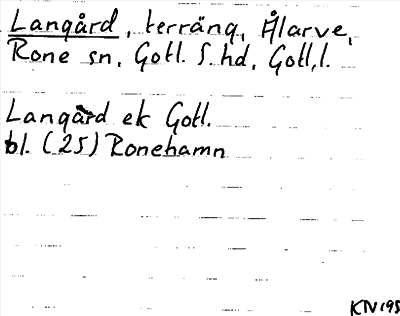 Langård, terräng, Ålarve,
Rone sn, Gotl. S. hd, Gotl. l.
Langård ek Gotl.
bl. (25) Ronehamn
KN 195